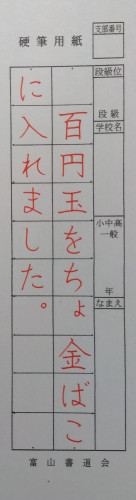 硬筆用紙
支部番号
段級位
段級
学校名
小中高
一般
年
なまえ
百円玉をちょ金ばこ
に入れました。
富山書道会